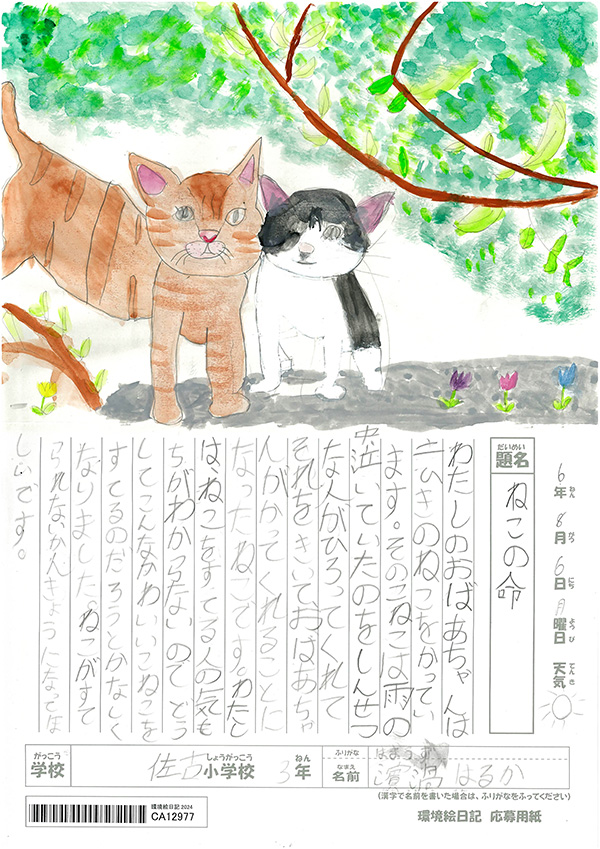 6年8月6日月曜日 天気
ねん がつ にち ようび てんき
だいめい
題名
ねこの命
わたしのおばあちゃんは
二ひきのねこをかってい
ます。そのこねこは雨の
中泣いていたのをしんせつ
な人がひろってくれて
それをきいておばあちゃ
んがかってくれることに
なったねこです。わたし
は、ねこをすてる人の気も
ちがわからないのでどう
してこんなかわいいこねこを
すてるのだろうとかなしく
なりました。ねこがすて
られないかんきょうになってほ
しいです。
がっこう
学校
佐古小学校
しょうがっこう
3年
ねん
ふりがな
なまえ
名前
はるか
(漢字で名前を書いた場合は、ふりがなをふってください)
環境絵日記2024
CA12977
環境絵日記 応募用紙